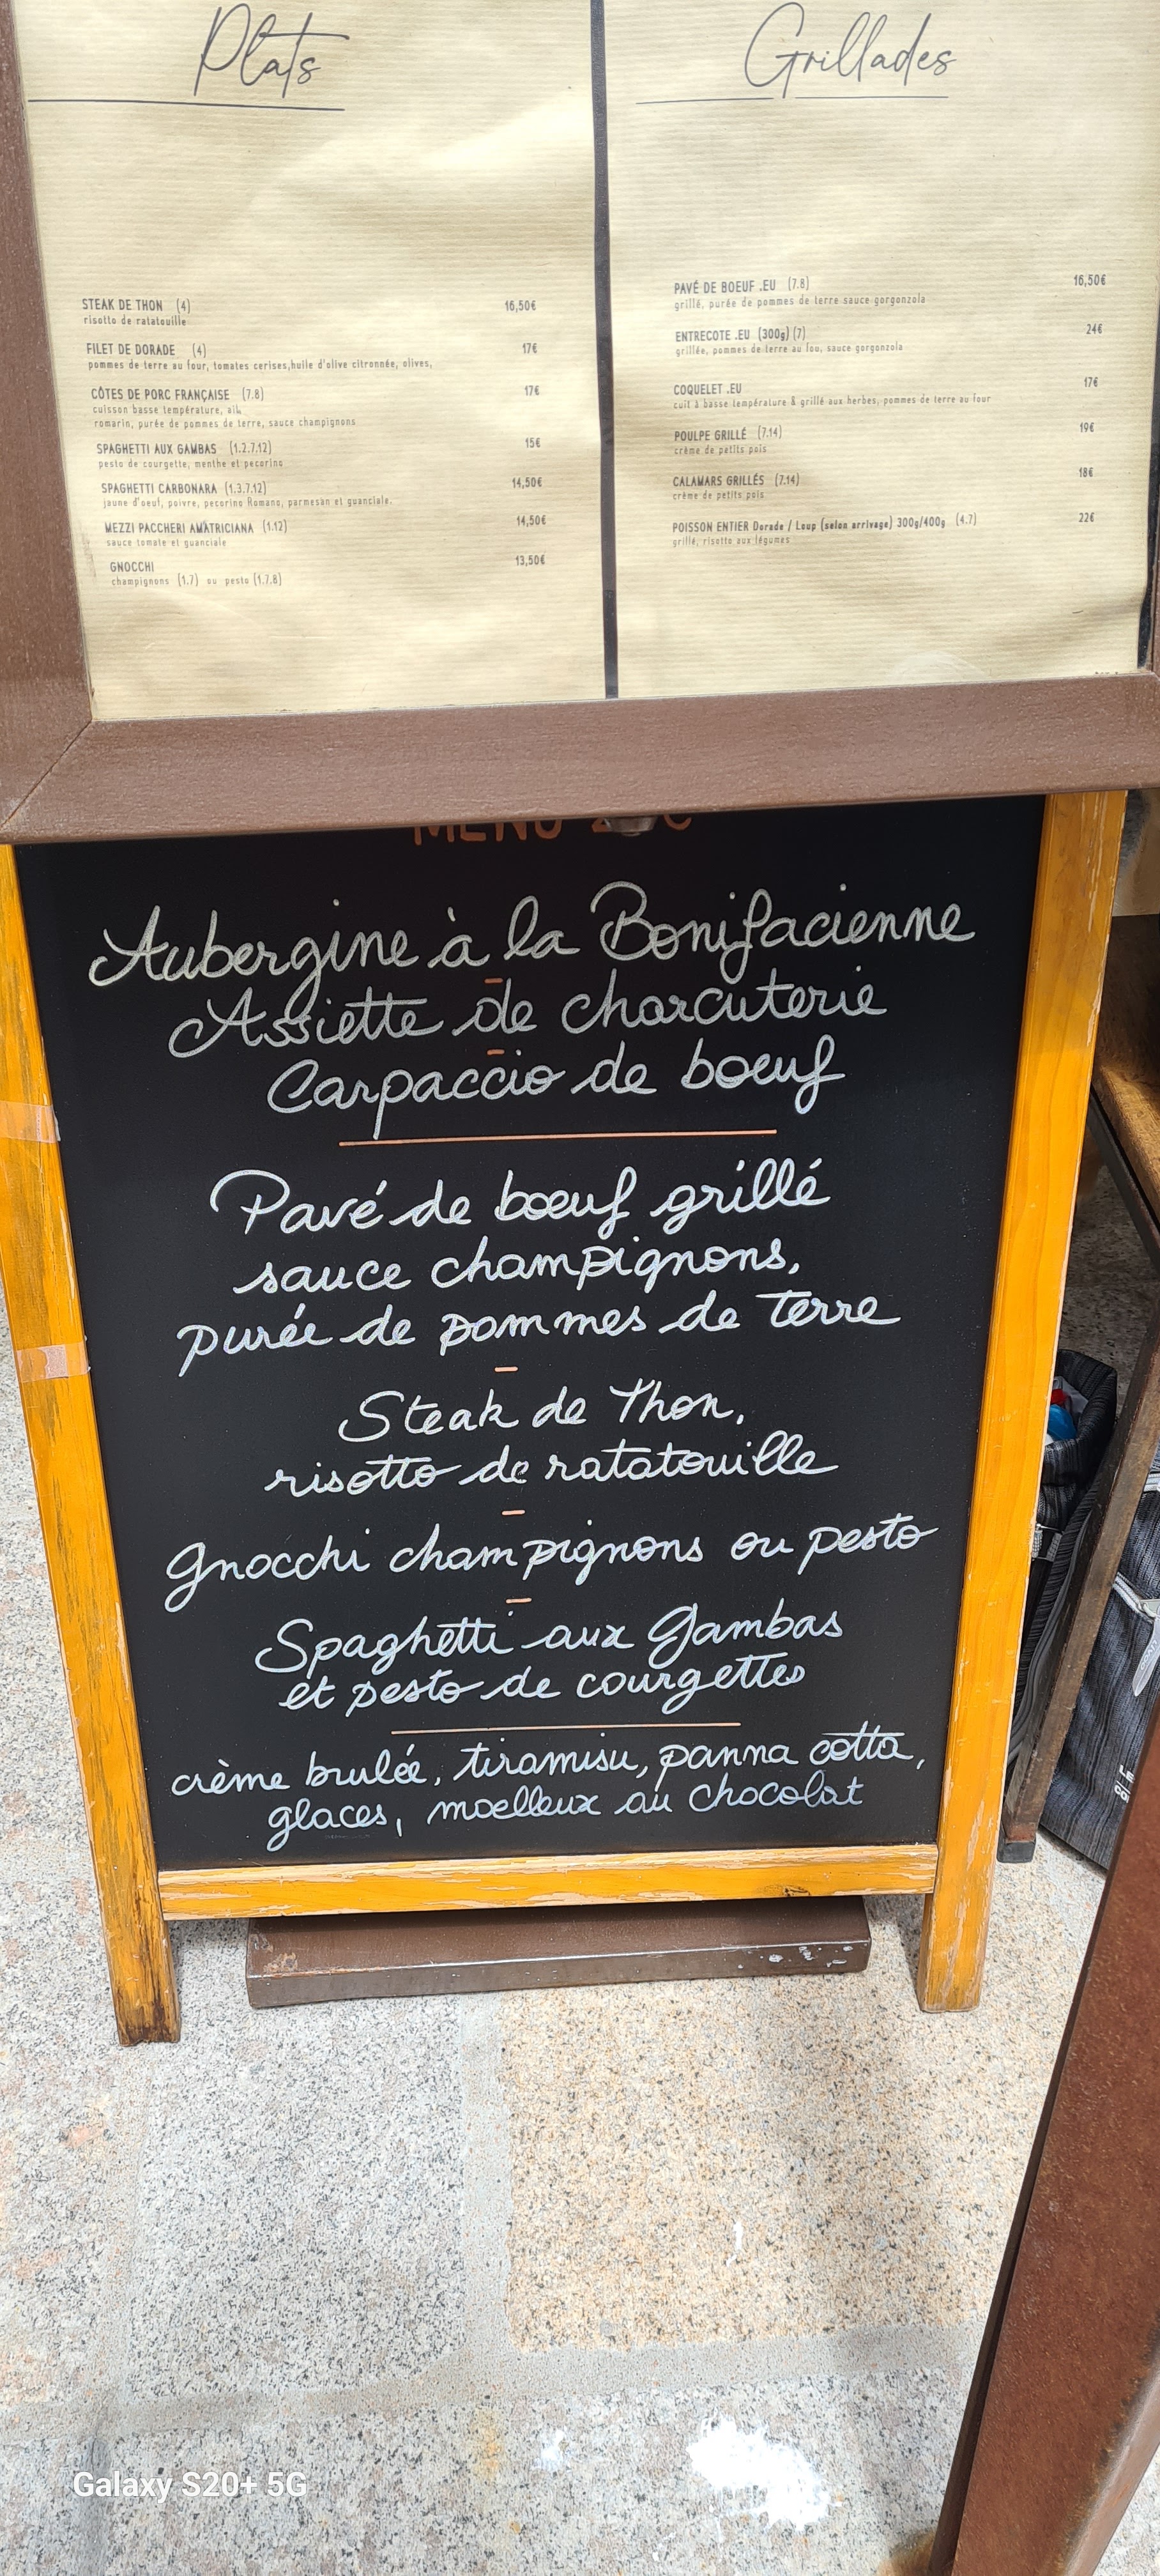 Plats
STEAK DE THON (4) 16,50€
risotto de ratatouille
FILET DE DORADE (4) 17€
pommes de terre au four, tomates cerises,huile d'olive citronnée, olives,
CÔTES DE PORC FRANÇAISE (7.8) 17€
cuisson basse température, ail,
romarin, purée de pommes de terre, sauce champignons
SPAGHETTI AUX GAMBAS (1.2.7.12) 15€
pesto de courgette, menthe et pecorino
SPAGHETTI CARBONARA (1.3.7.12) 14,50€
jaune d'oeuf, poivre, pecorino Romano, parmesan et guanciale.
MEZZI PACCHERI AMATRICIANA (1.12) 14,50€
sauce tomate et guanciale
GNOCCHI 13,50€
champignons (1.7) ou pesto (1.7.8)
Grillades
PAVÉ DE BOEUF .EU (7.8) 16,50€
grillé, purée de pommes de terre sauce gorgonzola
ENTRECOTE .EU (300g) (7) 24€
grillée, pommes de terre au fou, sauce gorgonzola
COQUELET .EU 17€
cuit à basse température & grillé aux herbes, pommes de terre au four
POULPE GRILLÉ (7.14) 19€
crème de petits pois
CALAMARS GRILLÉS (7.14) 18€
crème de petits pois
POISSON ENTIER Dorade / Loup (selon arrivage) 300g/400g (4.7) 22€
grillé, risotto aux légumes
MENU
Aubergine à la Bonifacienne
Assiette de charcuterie
Carpaccio de boeuf
Pavé de boeuf grillé
sauce champignons,
purée de pommes de terre
Steak de Thon,
risotto de ratatouille
Gnocchi champignons ou pesto
Spaghetti aux Gambas
et pesto de courgettes
crème brulée, tiramisu, panna cotta,
glaces, moelleux au chocolat
Galaxy S20+ 5G